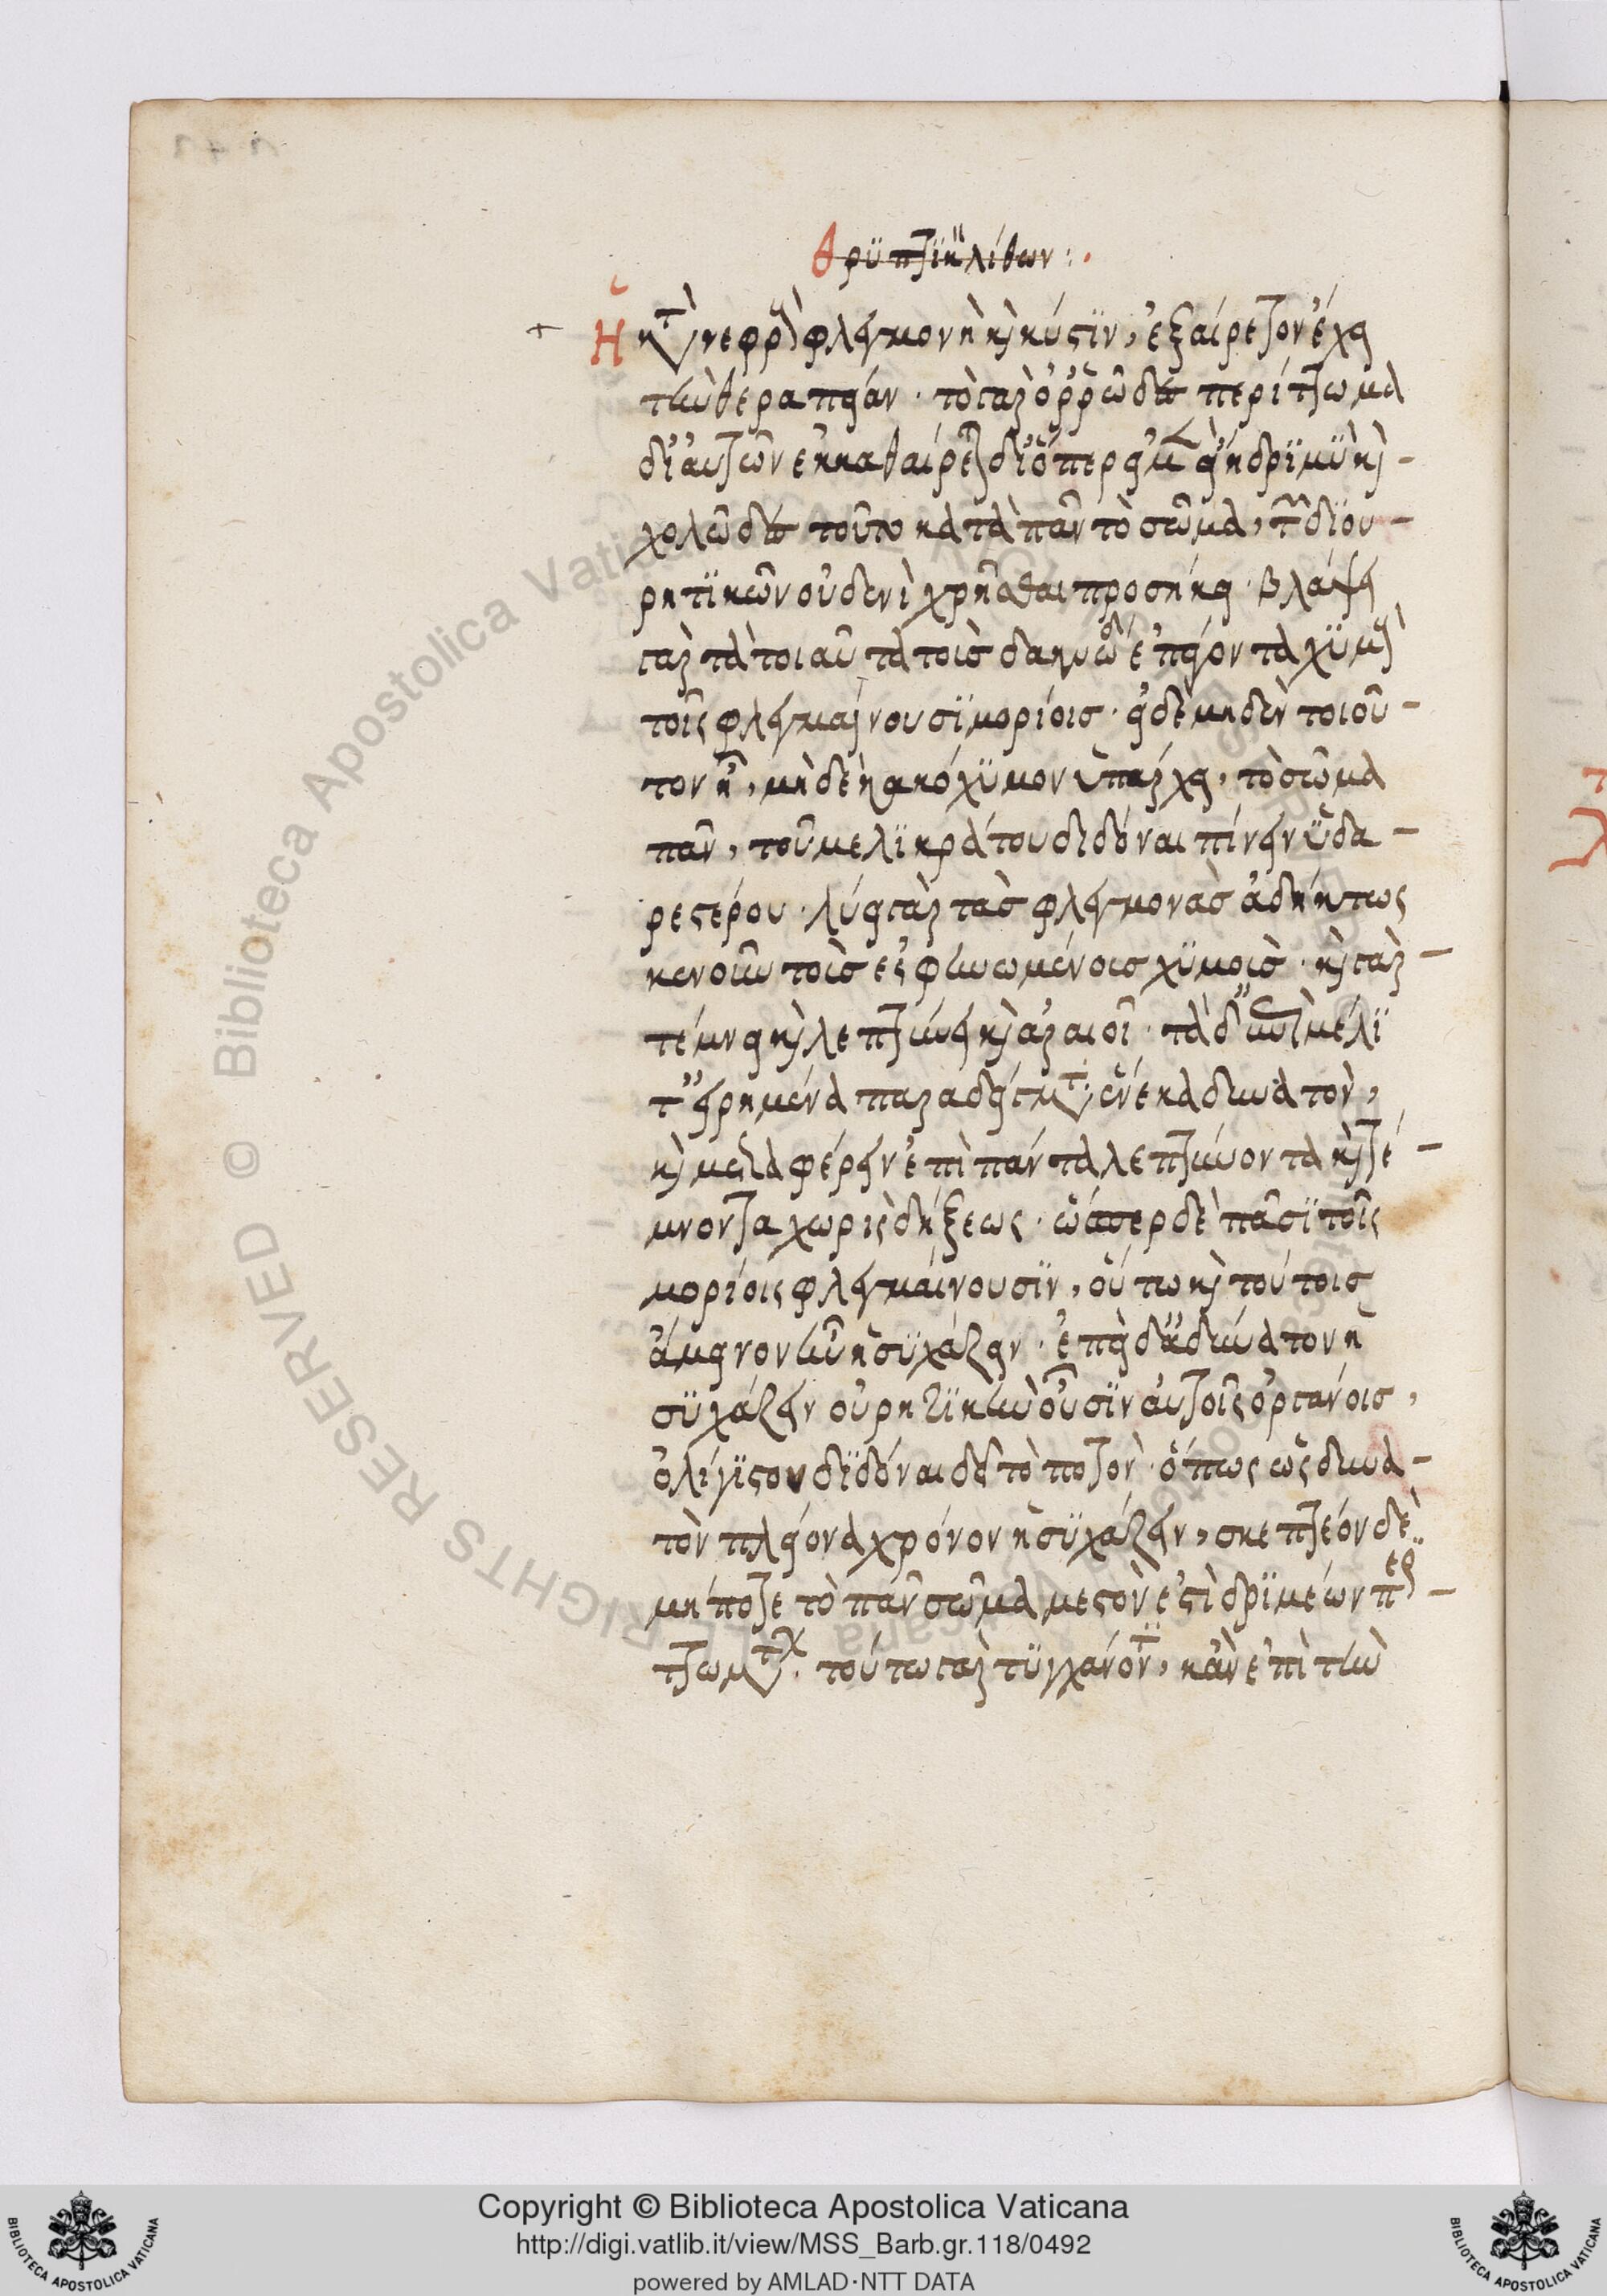 θρυπτικὰ λίθων:
Ἡ κατὰ νεφροὺς φλεγμονὴ καὶ κύστιν, ἐξαίρετον ἔχει
τὴν θεραπείαν. τὸ γὰρ ὀῤῥῶδες περίττωμα
δι' αὐτῶν ἐκκαθαίρεται διόπερ εἰ μὲν εἴη δριμὺ καὶ -
χολῶδες τοῦτο κατὰ πᾶν τὸ σῶμα, τῶν διου-
ρητικῶν οὐδενὶ χρῆσθαι προσήκει. βλάψει
γὰρ τὰ τοιαῦτα τοὺς δακνώδεις ἐπάγοντα χυμοὺς
τοῖς φλεγμαίνουσι μορίοις. εἰ δὲ μηδὲν τοιοῦ-
τον εἴη, μηδὲ κακόχυμον ὑπάρχει, τὸ σῶμα
πᾶν, τοῦ μελικράτου διδόναι πίνειν ὑδα-
ρεστέρου. λύει γὰρ τὰς φλεγμονὰς ἀδήκτως
κενοῦν τοὺς ἐσφηνωμένους χυμούς. καὶ γὰρ -
τέμνει καὶ λεπτύνει καὶ ἀραιοῖ. τὰ δ'
τῶν εἰρημένα παραδείγματος ἕνεκα δυνατὸν,
καὶ μεταφέρειν ἐπὶ πάντα λεπτύνοντα καὶ τέ-
μνοντα χωρὶς δήξεως. ὥσπερ δὲ πᾶσι τοῖς
μορίοις φλεγμαίνουσιν, οὕτω καὶ τούτοις
ἄμεινον ἦν ἡσυχάζειν. ἐπεὶ δ' ἀδύνατον ἡ
συχάζειν οὐρητικὴν οὖσιν αὐτοῖς ὀργάνοις,
ὀλίγιστον διδόναι δεῖ τὸ ποτόν. ὅπως ὡς δυνα-
τὸν πλείονα χρόνον ἡσυχάζειν, σκεπτέον δὲ
μήποτε τὸ πᾶν σῶμα μεστὸν ἐστὶ δριμέων περι-
ττωμάτων. τούτω γὰρ τυγχάνοντι, κἂν ἐπὶ τὴν
Copyright © Biblioteca Apostolica Vaticana
http://digi.vatlib.it/view/MSS_Barb.gr.118/0492
powered by AMLAD·NTT DATA